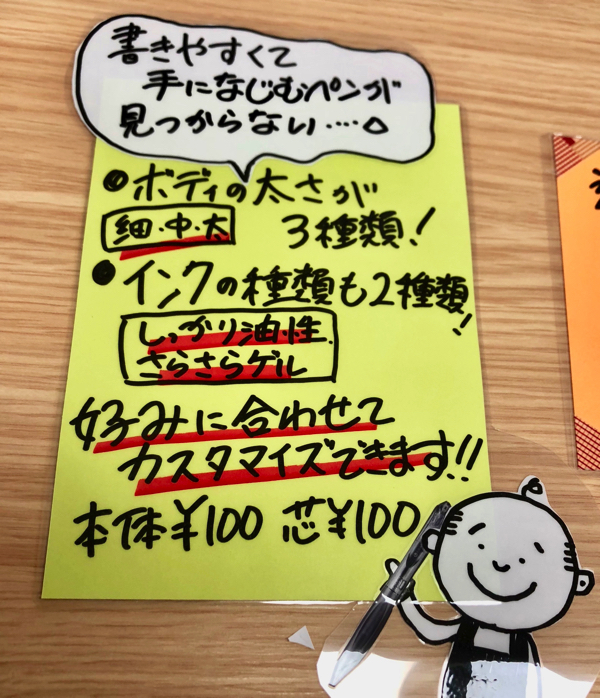 書きやすくて
手になじむペンが
見つからない‥‥。
●ボディの太さが
細・中・太 3種類!
●インクの種類も2種類!
しっかり油性
さらさらゲル
好みに合わせて
カスタマイズできます!!
本体¥100 芯¥100